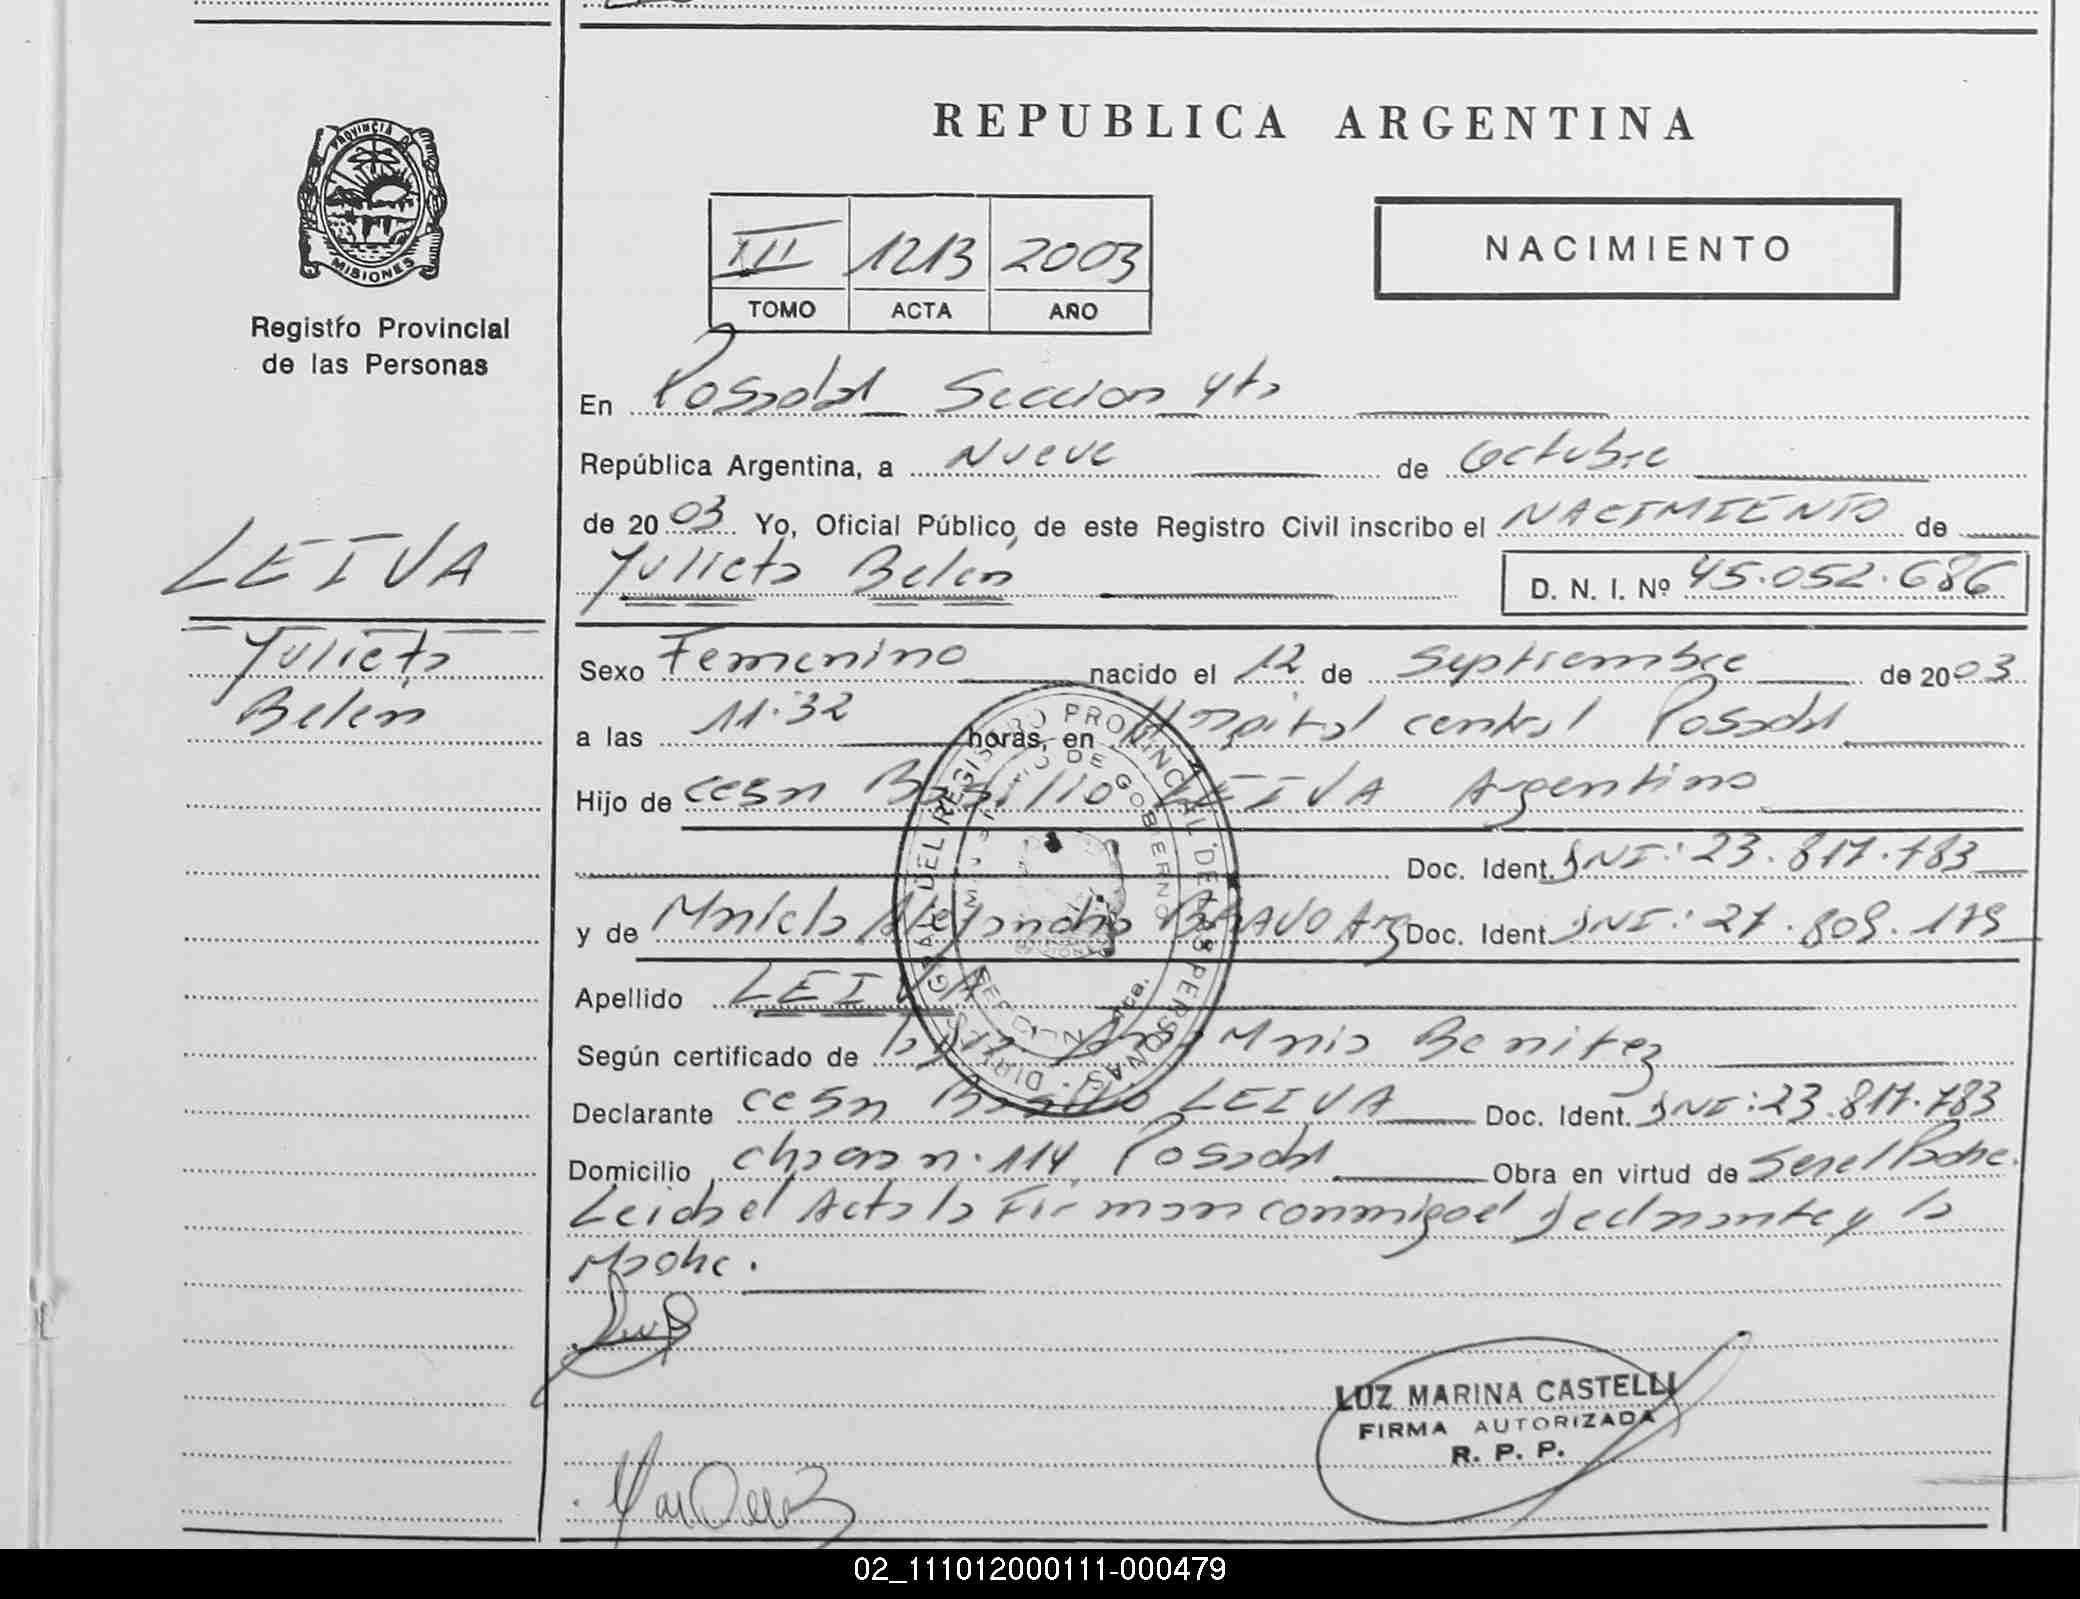 REPUBLICA ARGENTINA
PROVINCIA DE
MISIONES
Registro Provincial
de las Personas
III 1213 2003
TOMO ACTA AÑO
NACIMIENTO
En Posadas Seccion 4ta
República Argentina, a Nueve de Octubre
de 2003 Yo, Oficial Público, de este Registro Civil inscribo el NACIMIENTO de
Julieta Belen D. N. I. Nº 45.052.686
LEIVA
Julieta
Belen
Sexo Femenino nacido el 12 de Septiembre de 2003
a las 11.32 horas, en Hospital central Posadas
Hijo de Cesar Basilio LEIVA Argentino
Doc. Ident. DNI: 23.817.783
y de Mariela Alejandra BRAVO Arg Doc. Ident. DNI: 27.809.179
Apellido LEIVA
Según certificado de la Maria Benitez
Declarante Cesar Basilio LEIVA Doc. Ident. DNI: 23.817.783
Domicilio chacra n. 114 Posadas Obra en virtud de Ser el Padre.
Leida el Acta la Firman conmigo el declarante y la
Madre.
REGISTRO PROVINCIAL DE LAS PERSONAS
DE GOBIERNO
LUZ MARINA CASTELLI
FIRMA AUTORIZADA
R. P. P.
02_111012000111-000479